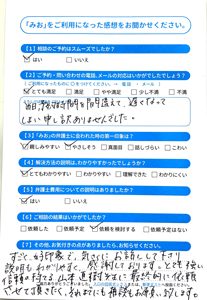 「みお」をご利用になった感想をお聞かせください。
【1】相談のご予約はスムーズでしたか？
✓はい いいえ
【2】ご予約・問い合わせの電話、メールの対応はいかがでしたでしょうか？
とても満足 満足 やや不満 不満
時間を間違えて、遅くなって
しまい申し訳ありませんでした。
【3】「みお」の弁護士に会われた時の第一印象は？
親しみやすい やさしそう 真面目 話しづらい こわい
【4】解決方法の説明は、わかりやすかったでしょうか？
とてもわかりやすい わかりやすい 理解できた わかりにくい
【5】弁護士費用についての説明はありましたか？
はい いいえ
【6】ご相談の結果はいかがでしたか？
依頼した 依頼予定 依頼を検討する 依頼予定はない
【7】その他、お気付きの点がありましたら、お知らせください。
すごく好印象で、気さくにお話して下さり
説明もわかりやすく、感謝しております。とても強い
信頼を持てる
させて頂きたく、それまでにも相談をお願い致します。